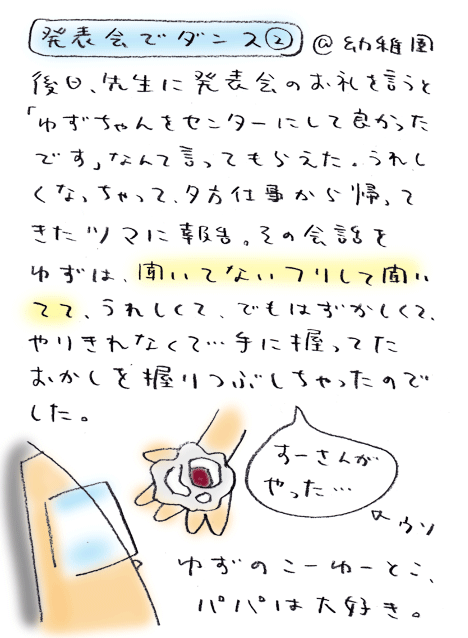 発表会でダンス② @幼稚園
後日、先生に発表会のお礼を言うと
「ゆずちゃんをセンターにして良かった
です」なんて言ってもらえた。うれし
くなっちゃって、夕方仕事から帰って
きたツマに報告。その会話を
ゆずは、聞いてないフリして聞い
てて、うれしくて、でもはずかしくて、
やりきれなくて…手に握ってた
おかしを握りつぶしちゃったので
した。
すーさんが
やった…
ウソ
ゆずのこーゆーとこ、
パパは大好き。